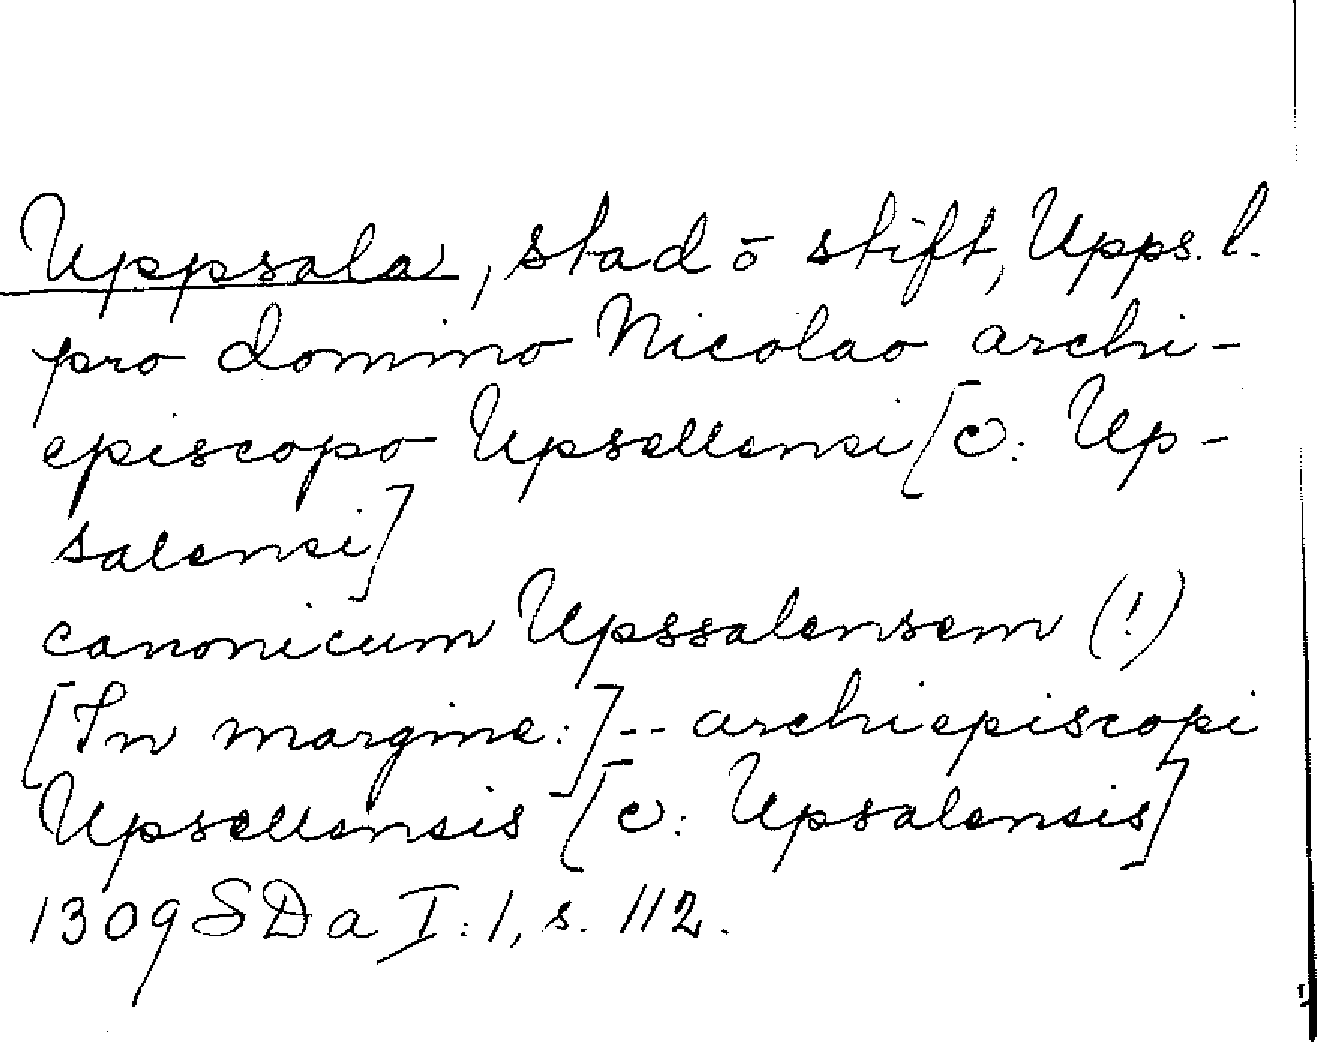 Uppsala, stad ō stift, Upps. l.
pro domino Nicolao archi-
episcopo Upsellensi [ɔ: Up-
salensi]
canonicum Upssalensem (!)
[In margine:] -- archiepiscopi
Upsellensis [ɔ: Upsalensis]
1309 SDa I:1, s. 112.